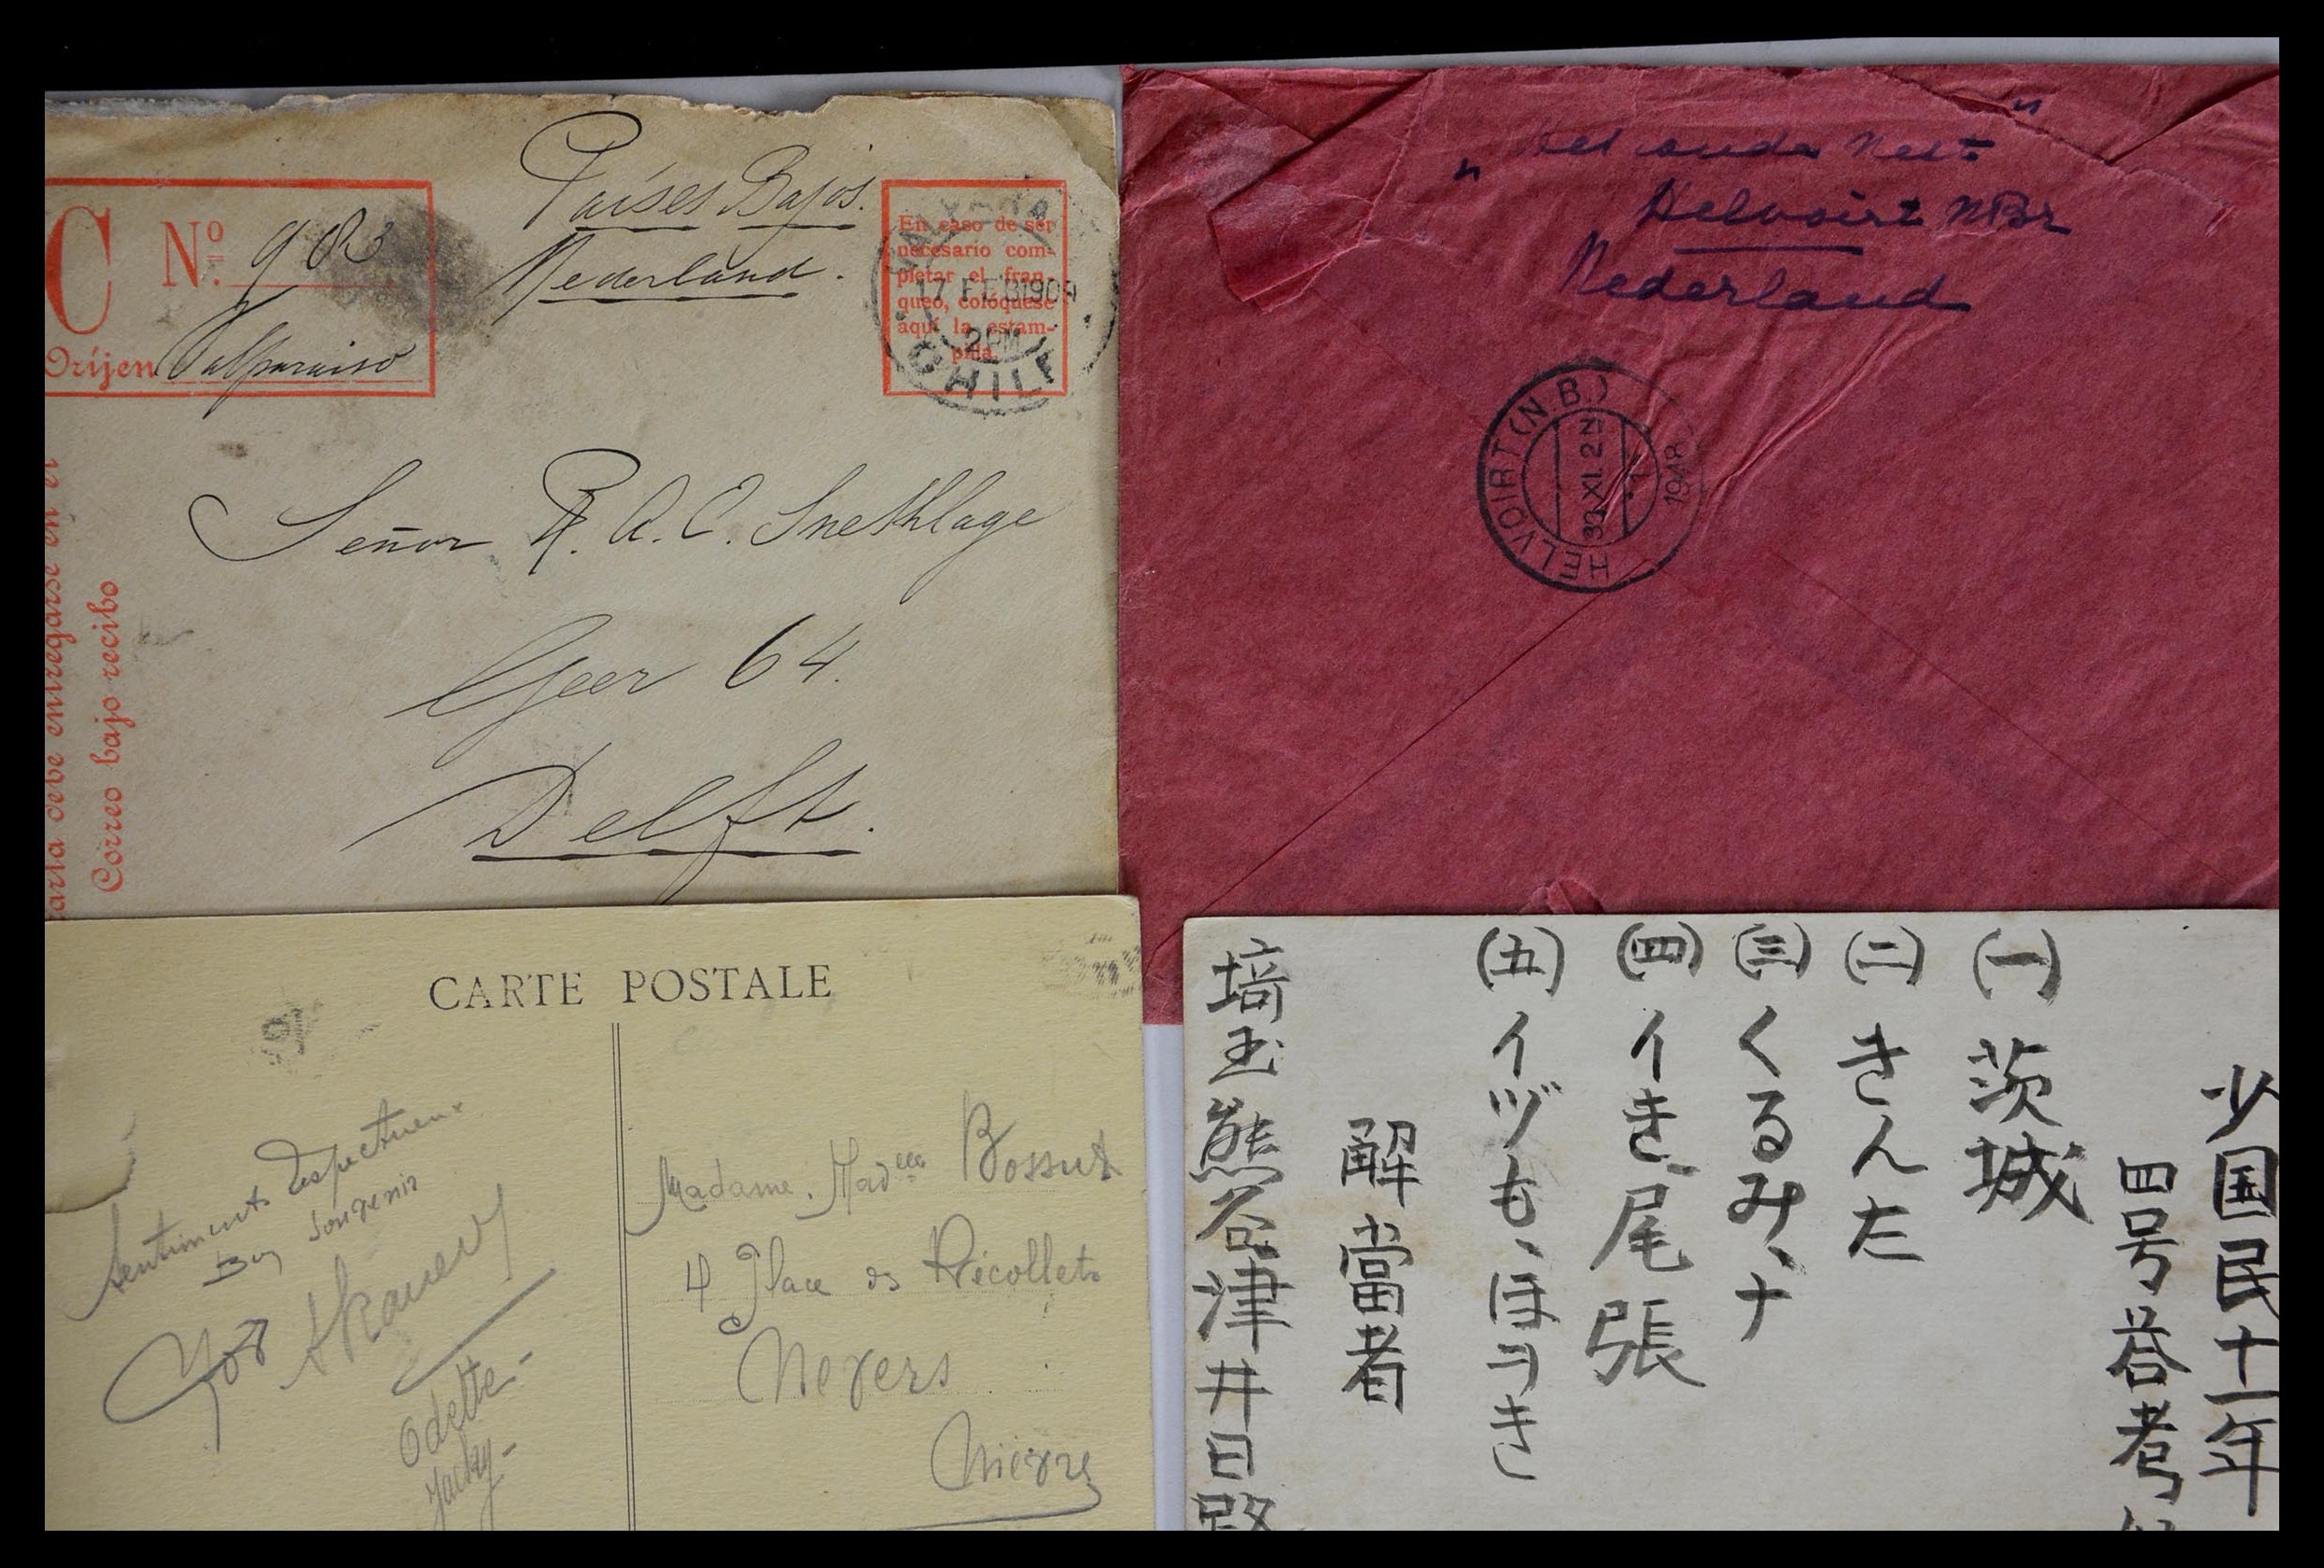 Países Bajos.
Nederland.
C Nº 983
Oríjen Valparaiso
En caso de ser
necesario com-
pletar el fran-
queo, colóquese
aquí la estam-
pilla.
17 FEB 1909
2PM
CHILE
carta debe entregarse en el
Correo bajo recibo
Señor R. A. C. Snethlage
Geer 64.
Delft.
"Het oude Nest"
Helvoirt NBr
Nederland
HELVOIRT (N.B.)
30.XI.
1948
CARTE POSTALE
Sentiments respectueux
Bon souvenir
Odette-
Jacky-
Madame. Mad^elle Bossut
4 Place des Récollets
Nevers
Nièvre
少国民十一年
四号答考
(一)茨城
(二)きんた
(三)くるみ、ナ
(四)イき、尾張
(五)イヅも、ほうき
解當者
埼玉熊谷津井日路